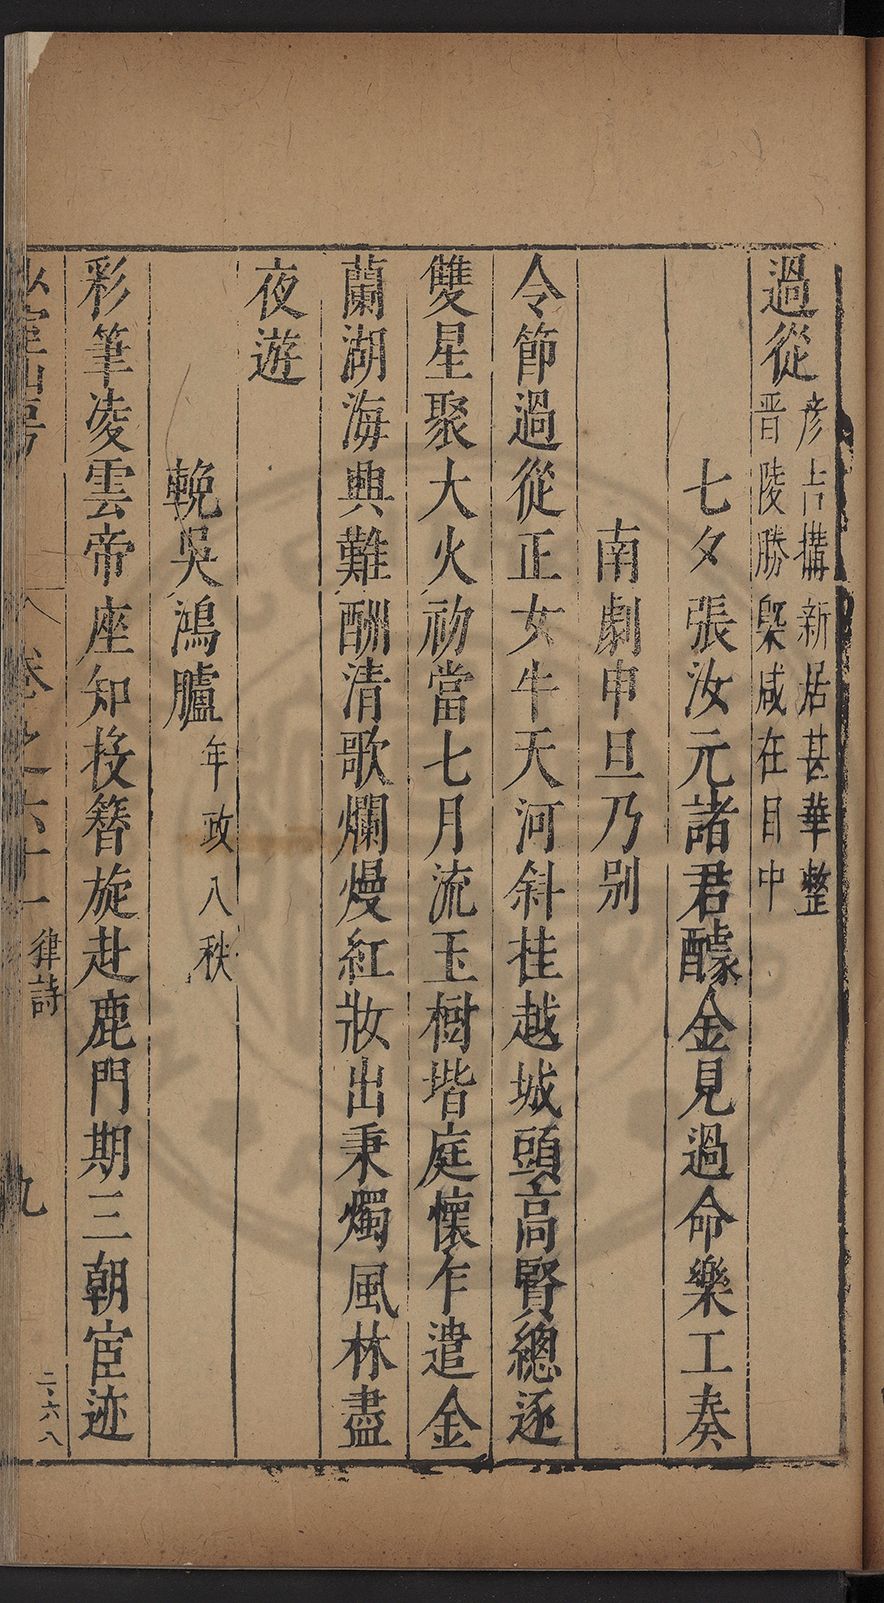 過從彦吉搆新居甚華整
晋陵勝槩咸在目中
七夕張汝元諸君醵金見過命樂工奏
南劇申旦乃别
令節過從正女牛天河斜挂越城頭高賢總逐
雙星聚大火初當七月流玉樹堦庭懷乍遣金
蘭湖海興難酬清歌爛熳紅妝出秉燭風林盡
夜遊
輓吳鴻臚年政八秩
彩筆凌雲帝座知投簪旋赴鹿門期三朝宦迹
卷之六十一 律詩 九 二、六八